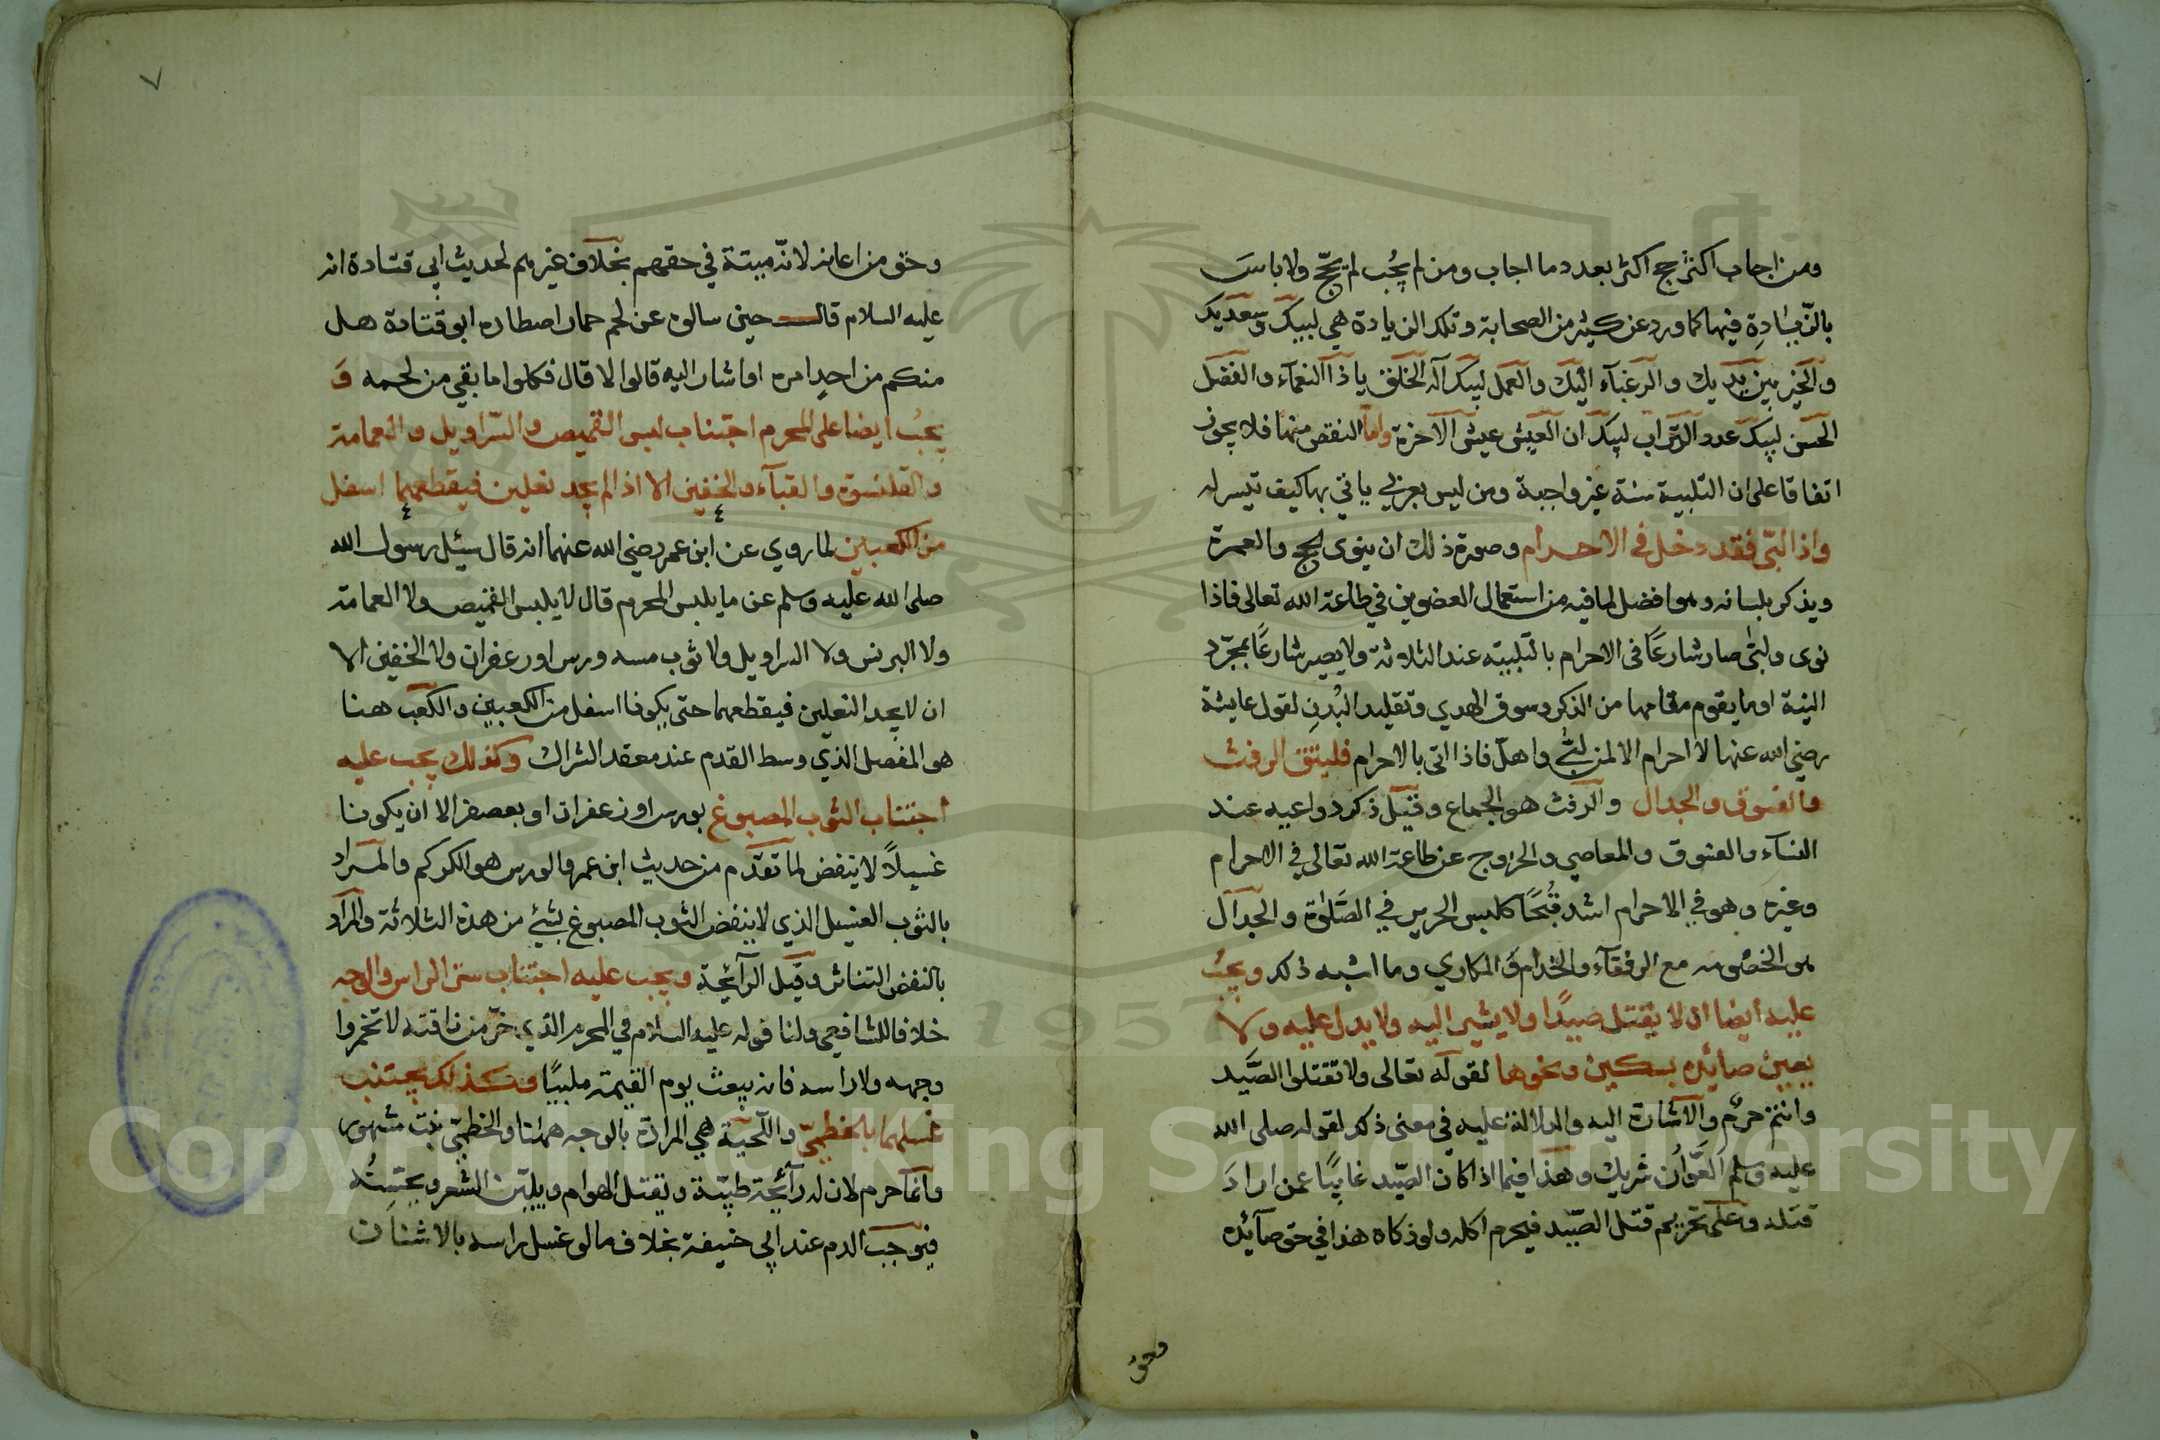 ومن اجاب اكثر حج اكثر بعدد ما اجاب ومن لم يُجب لم يحجّ ولا باسَ
بالزّيادةِ فيها كما ورد عن كثير من الصحابة وتلك الزيادة هي لبيك وسعديك
والخير بين يديك والرغباء اليك والعمل لبيك آله الخلق يا ذا النعماء والفضل
الحسن لبيك عدد التراب لبيك ان العيش عيش الآخرة وامّا النقص منها فلا يجوز
اتفاقا على ان التلبية سنة غير واجبة ومن ليس بعربي ياتي بها كيف تيسر له
واذا لبّى فقد دخل في الاحرام وصورة ذلك ان ينوى الحج والعمرة
ويذكر بلسانه وهو افضل لما فيه من استعمال العضوين في طاعة الله تعالى فاذا
نوى ولبّى صار شارعًا في الاحرام بالتلبية عند الثلاثة ولا يصير شارعًا بمجرّد
النية او ما يقوم مقامها من الذكر وسوق الهدي وتقليد البُدنِ لقول عايشة
رضي الله عنها لا احرام الا لمن لبّى واهلّ فاذا اتى بالاحرام فليتق الرفث
والفسوق والجدال والرفث هو الجماع وقيل ذكر دواعيه عند
النساء والفسوق والمعاصي والخروج عن طاعة الله تعالى في الاحرام
وغيره وهو في الاحرام اشد قُبْحًا كلبس الحرير في الصّلوة والجدال
هو الخصومه مع الرفقاء والخدام والمكاري وما اشبه ذلك ويجبُ
عليه ايضا ان لا يقتل صيدًا ولا يشير اليه ولا يدل عليه ولا
يعين صائده بسكين ونحوها لقوله تعالى ولا تقتلوا الصَّيد
وانتم حرمٌ والاشارة اليه والدلالة عليه في معنى ذلك لقوله صلى الله
عليه وسلم العَوّان شريك وهذا فيما اذا كان الصّيد غايبًا عمن ارادَ
قتله وعلم تحريم قتل الصّيد فيحرم اكله ولو ذكاه هذا في حق صآئده
وحق
٧
وحق من اعانه لانّه ميتة في حقهم بخلاف غيرهم لحديث ابي قتادة انه
عليه السلام قال حين سالوه عن لحم حمار اصطاده ابو قتادة هل
منكم من احدٍ امره او اشار اليه قالوا لا قال فكلوا ما بقي من لحمه وَ
يجبُ ايضا على المحرم اجتناب لبس القميص والسّراويل والعمامة
والقلنسوة والقباء والخفين الا اذا لم يجد نعلين فيقطعهما اسفل
من الكعبين لما روي عن ابن عمر رضي الله عنهما انه قال سئل رسول الله
صلى الله عليه وسلم عن ما يلبس المحرم قال لا يلبس القميص ولا العمامة
ولا البرنس ولا السراويل ولا ثوب مسه ورس او زعفران ولا الخفين الا
ان لا يجد النعلين فيقطعهما حتى يكونا اسفل من الكعبين والكعب هنا
هو المفصل الذي وسط القدم عند معقد الشراك وكذلك يجب عليه
اجتناب الثوب المصبوغ بورس او زعفران او بعصفر الا ان يكونا
غسيلاً لا ينفض لما تقدّم من حديث ابن عمر والورس هو الكركم والمراد
بالثوب الغسيل الذي لا ينفض الثوب المصبوغ بشيء من هذه الثلاثة والمراد
بالنفض التناثر وقيل الرآئحة ويجب عليه اجتناب ستر الراس والوجه
خلافا للشافعي ولنا قوله عليه السلام في المحرم الذي خرّ من ناقته لا تخمروا
وجهه ولا راسه فانه يبعث يوم القيمة ملبيًا وكذلك يجتنب
غسلهما بالخطميّ واللحية هي المرادة بالوجه ههنا والخطميّ نبت مشهور
وانما حرم لان له رآئحة طيّبة ويقتل الهوام ويليّن الشعر ويجتنبه
فيوجب الدم عند ابي حنيفة بخلاف ما لو غسل راسه بالاشنان
Copyright © King Saud University
1957